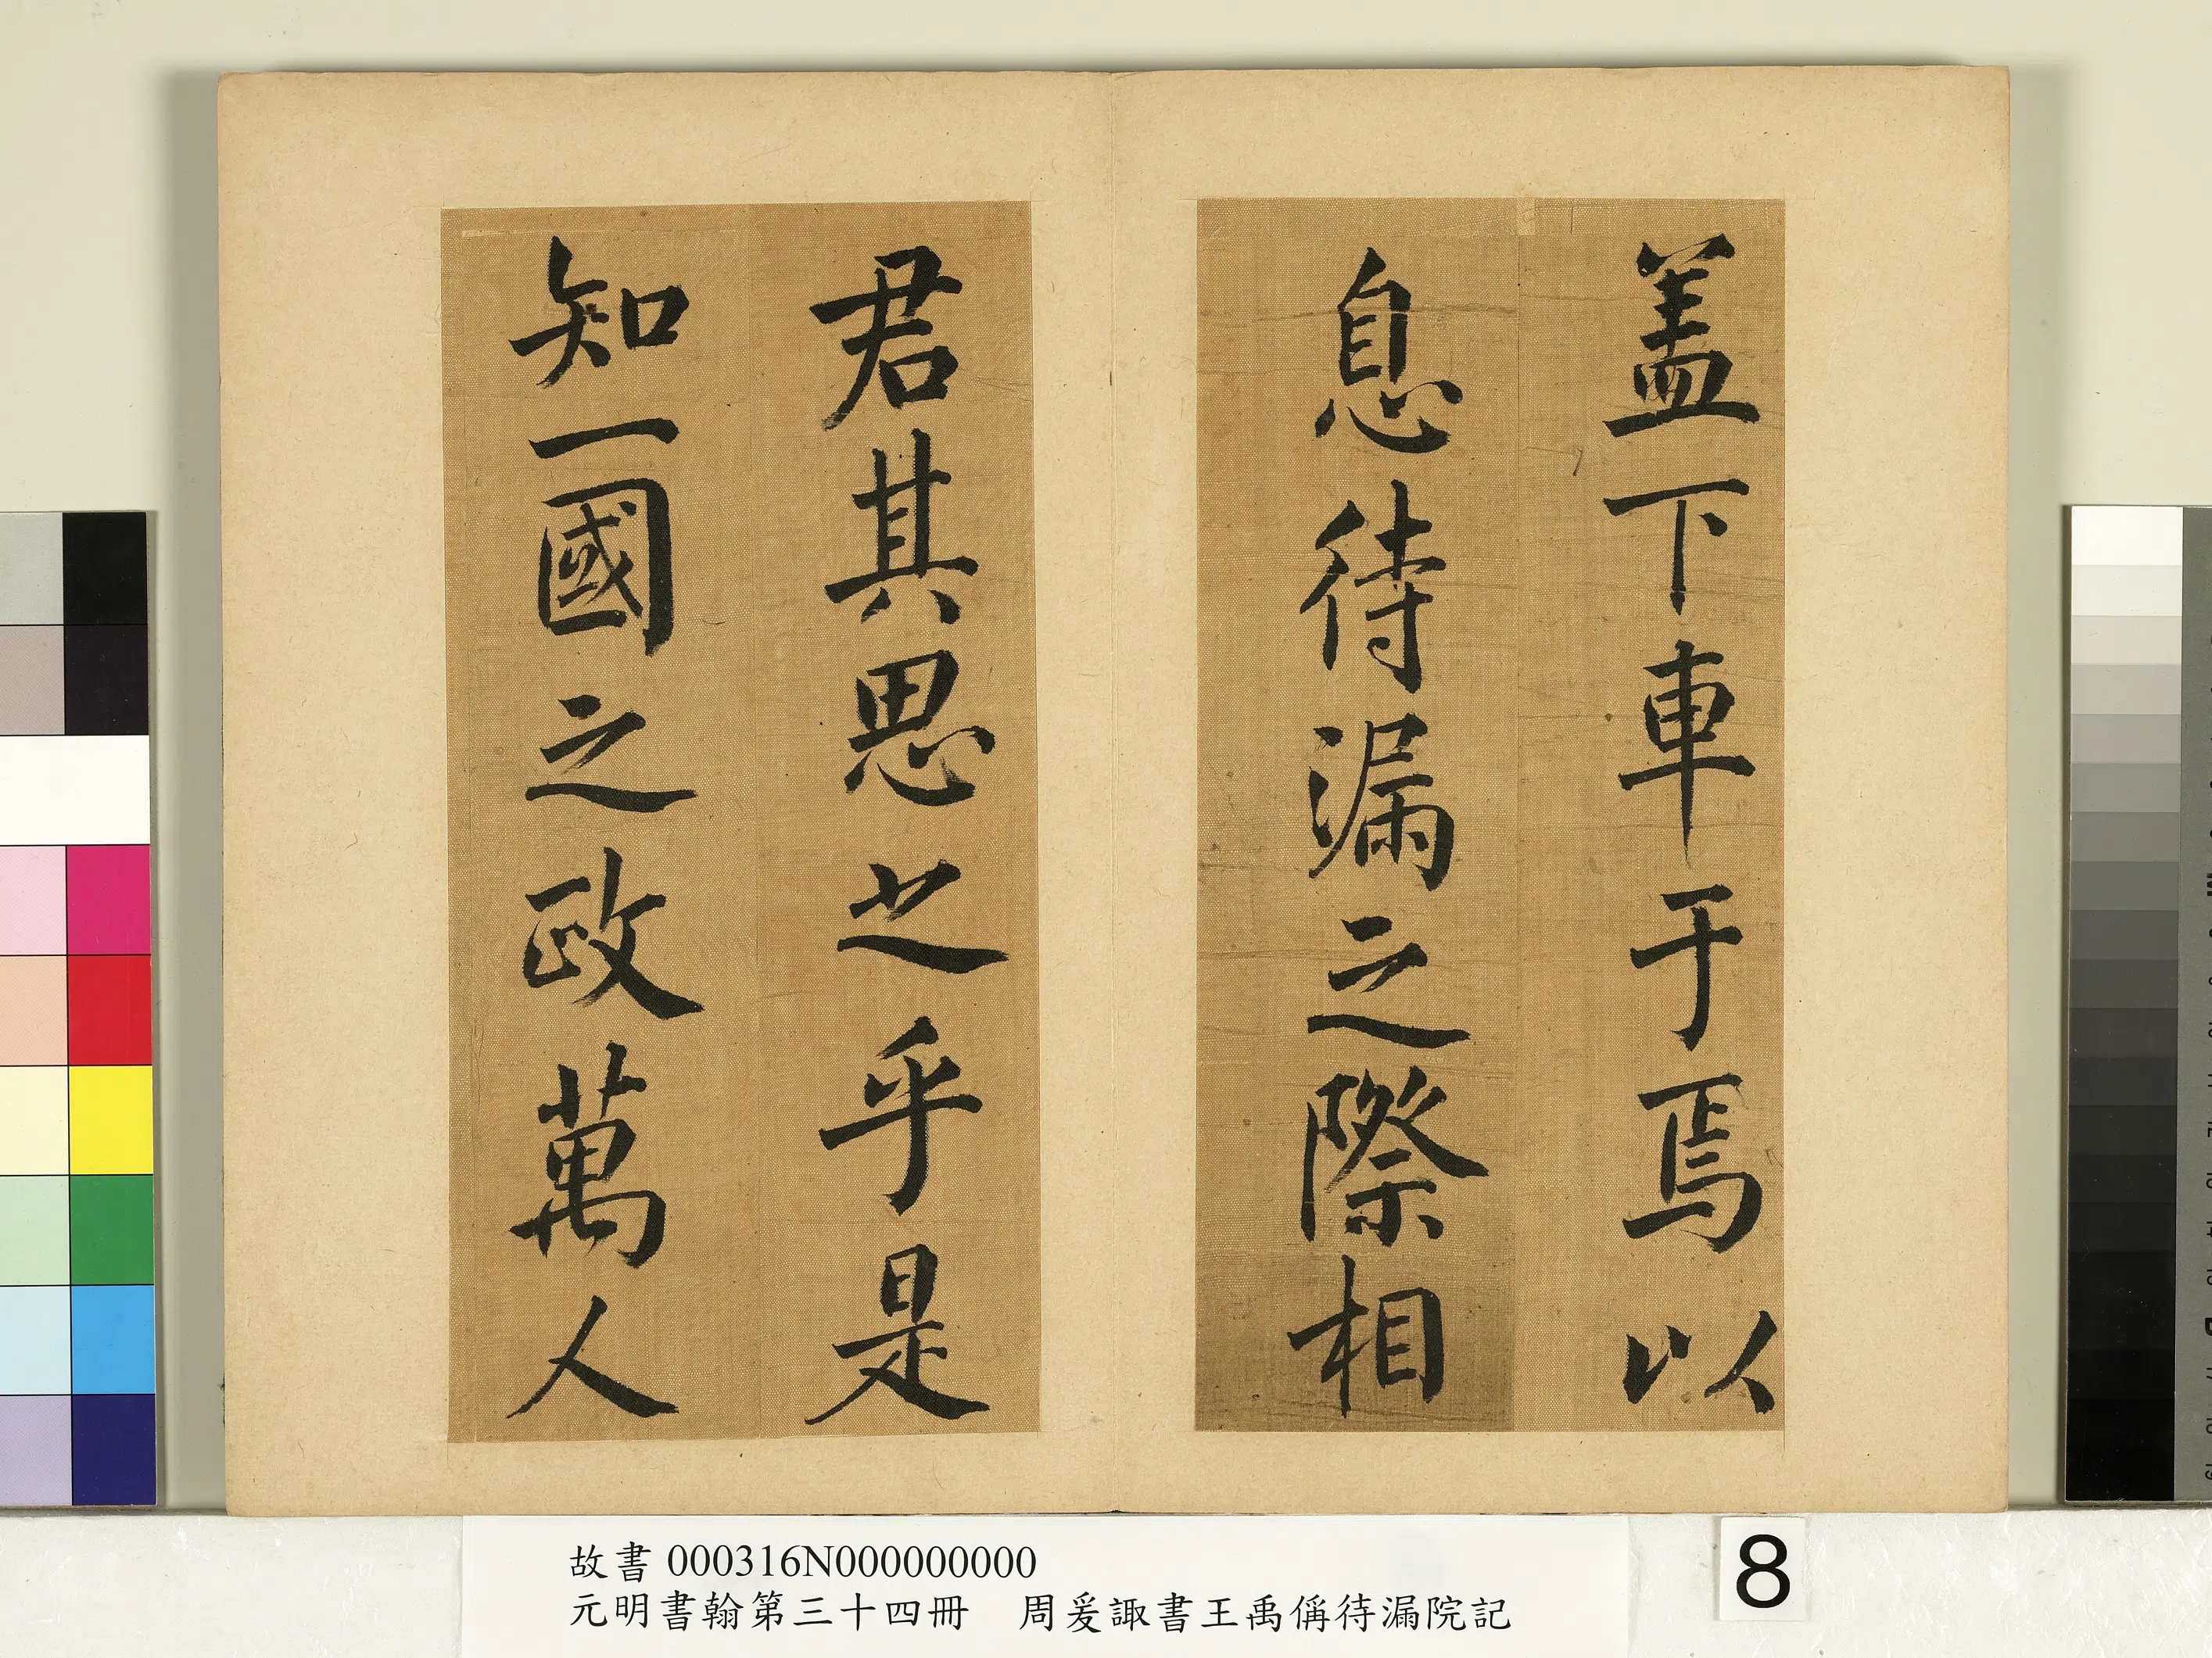 盖下車于焉以
息待漏之際相
君其思之乎是
知一國之政萬人
故書 000316N000000000
元明書翰第三十四冊　周爰諏書王禹偁待漏院記
8